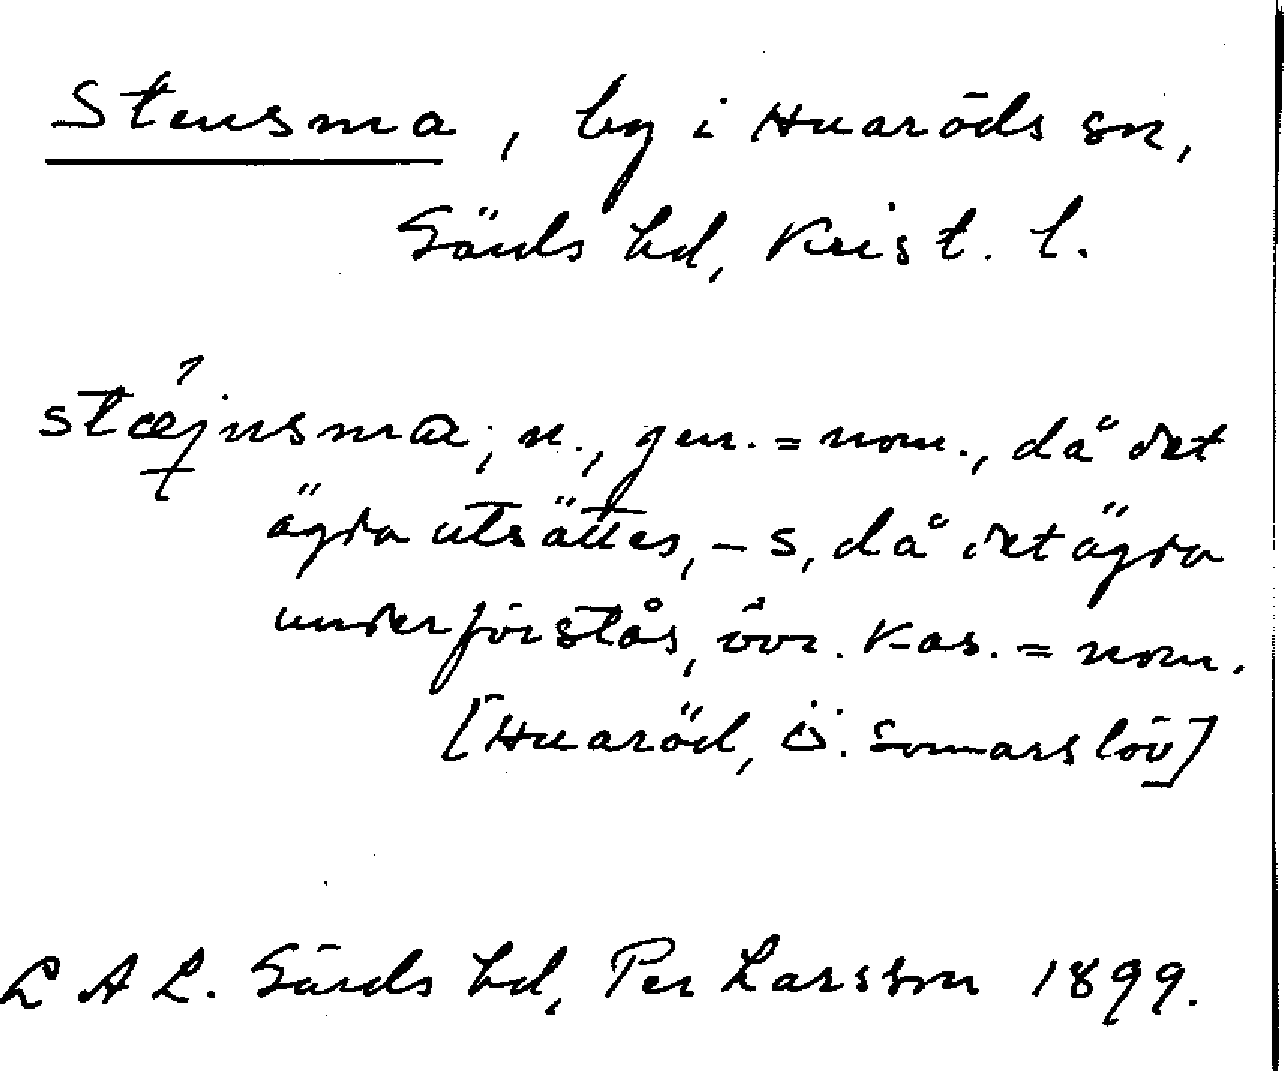 Stensma, by i Huaröds sn,
Gärds hd, Krist. l.
stæjnsma; n., gen. = nom., då det
ägda utsättes, – s, då det ägda
underförstås, övr. kas. = nom.
[Huaröd, Ö. Sönnarslöv]
L A L. Gärds hd, Per Larsson 1899.